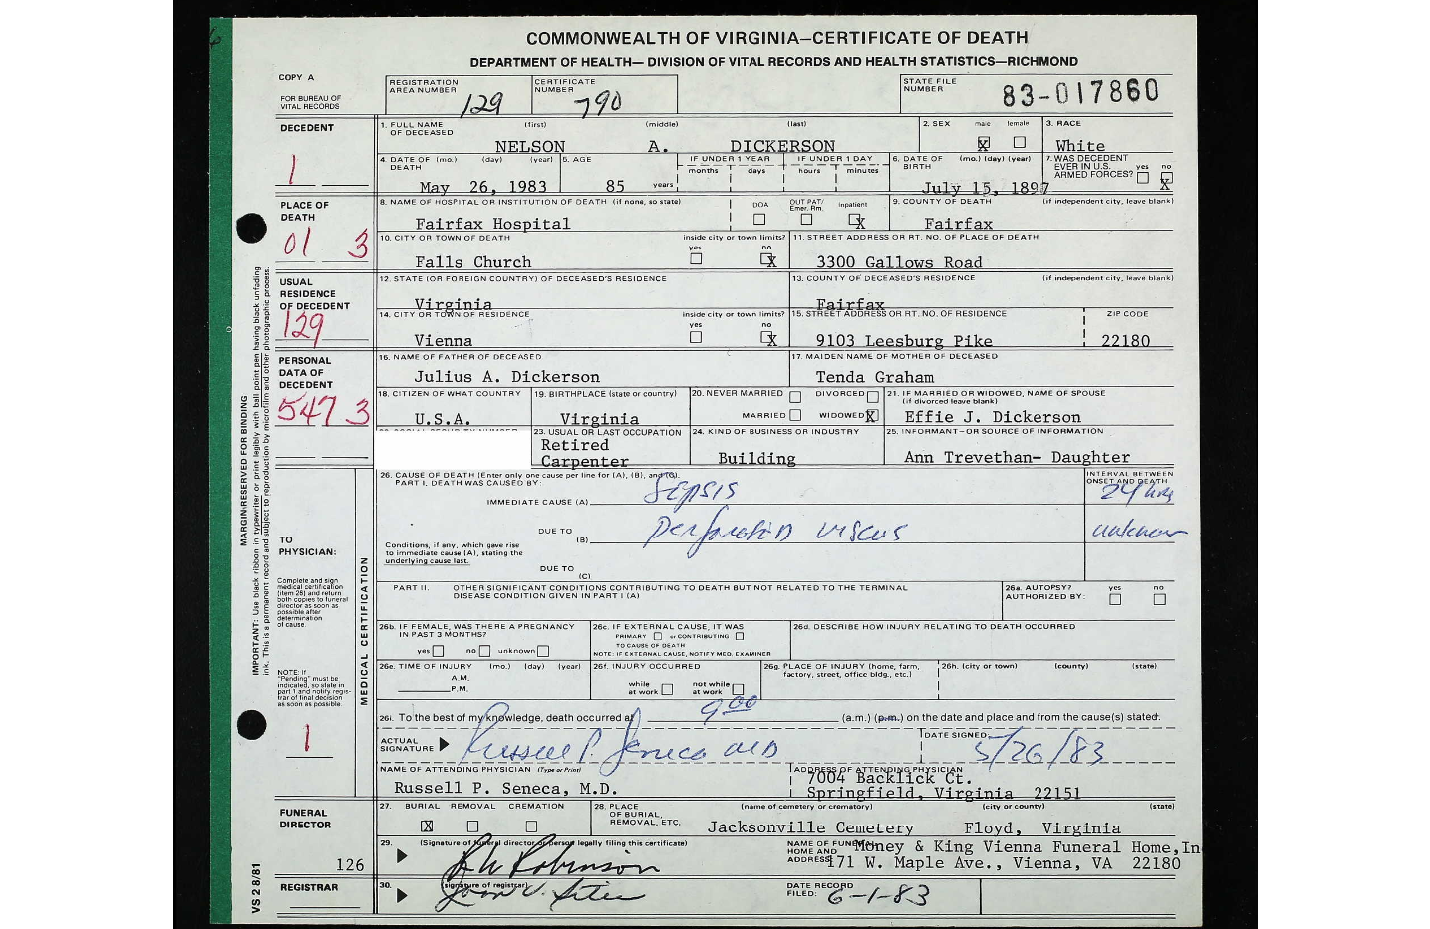 COMMONWEALTH OF VIRGINIA—CERTIFICATE OF DEATH
DEPARTMENT OF HEALTH— DIVISION OF VITAL RECORDS AND HEALTH STATISTICS—RICHMOND
COPY A
FOR BUREAU OF VITAL RECORDS
REGISTRATION AREA NUMBER 129
CERTIFICATE NUMBER 790
STATE FILE NUMBER 83-017860
DECEDENT
1
1. FULL NAME OF DECEASED (first) (middle) (last)
NELSON A. DICKERSON
2. SEX male female
X
3. RACE
White
4. DATE OF DEATH (mo.) (day) (year)
May 26, 1983
5. AGE
85 years
IF UNDER 1 YEAR months days
IF UNDER 1 DAY hours minutes
6. DATE OF BIRTH (mo.) (day) (year)
July 15, 1897
7. WAS DECEDENT EVER IN U.S. ARMED FORCES? yes no
X
PLACE OF DEATH
01 3
8. NAME OF HOSPITAL OR INSTITUTION OF DEATH (if none, so state)
Fairfax Hospital
DOA OUT PAT/ Emer. Rm. Inpatient
X
9. COUNTY OF DEATH (if independent city, leave blank)
Fairfax
10. CITY OR TOWN OF DEATH inside city or town limits? yes no
Falls Church X
11. STREET ADDRESS OR RT. NO. OF PLACE OF DEATH
3300 Gallows Road
USUAL RESIDENCE OF DECEDENT
129
12. STATE (OR FOREIGN COUNTRY) OF DECEASED'S RESIDENCE
Virginia
13. COUNTY OF DECEASED'S RESIDENCE (if independent city, leave blank)
Fairfax
14. CITY OR TOWN OF RESIDENCE inside city or town limits? yes no
Vienna X
15. STREET ADDRESS OR RT. NO. OF RESIDENCE ZIP CODE
9103 Leesburg Pike 22180
PERSONAL DATA OF DECEDENT
547 3
16. NAME OF FATHER OF DECEASED
Julius A. Dickerson
17. MAIDEN NAME OF MOTHER OF DECEASED
Tenda Graham
18. CITIZEN OF WHAT COUNTRY
U.S.A.
19. BIRTHPLACE (state or country)
Virginia
20. NEVER MARRIED DIVORCED
MARRIED WIDOWED X
21. IF MARRIED OR WIDOWED, NAME OF SPOUSE (if divorced leave blank)
Effie J. Dickerson
23. USUAL OR LAST OCCUPATION
Retired
Carpenter
24. KIND OF BUSINESS OR INDUSTRY
Building
25. INFORMANT—OR SOURCE OF INFORMATION
Ann Trevethan- Daughter
MARGIN RESERVED FOR BINDING
IMPORTANT: Use black ribbon in typewriter or print legibly with ball point pen having black unfading
ink. This is a permanent record and subject to reproduction by microfilm and other photographic process.
TO PHYSICIAN:
Complete and sign
medical certification
(item 26) and return
both copies to funeral
director as soon as
possible after
determination
of cause.
NOTE: If
"Pending" must be
indicated, so state in
part 1 and notify regis-
trar of final decision
as soon as possible.
1
MEDICAL CERTIFICATION
26. CAUSE OF DEATH (Enter only one cause per line for (A), (B), and (C).
PART I. DEATH WAS CAUSED BY:
INTERVAL BETWEEN ONSET AND DEATH
IMMEDIATE CAUSE (A) Sepsis 24 hrs
DUE TO (B) viscus unknown
Conditions, if any, which gave rise
to immediate cause (A), stating the
underlying cause last.
DUE TO (C)
PART II. OTHER SIGNIFICANT CONDITIONS CONTRIBUTING TO DEATH BUT NOT RELATED TO THE TERMINAL
DISEASE CONDITION GIVEN IN PART I (A)
26a. AUTOPSY? yes no
AUTHORIZED BY:
26b. IF FEMALE, WAS THERE A PREGNANCY IN PAST 3 MONTHS?
yes no unknown
26c. IF EXTERNAL CAUSE, IT WAS
PRIMARY or CONTRIBUTING
TO CAUSE OF DEATH
NOTE: IF EXTERNAL CAUSE, NOTIFY MED. EXAMINER
26d. DESCRIBE HOW INJURY RELATING TO DEATH OCCURRED
26e. TIME OF INJURY (mo.) (day) (year)
A.M.
P.M.
26f. INJURY OCCURRED
while at work not while at work
26g. PLACE OF INJURY (home, farm, factory, street, office bldg., etc.)
26h. (city or town) (county) (state)
26i. To the best of my knowledge, death occurred at 9:00 (a.m.) (p.m.) on the date and place and from the cause(s) stated:
ACTUAL SIGNATURE Russell P. Seneca MD
DATE SIGNED 5/26/83
NAME OF ATTENDING PHYSICIAN (Type or Print)
Russell P. Seneca, M.D.
ADDRESS OF ATTENDING PHYSICIAN
7004 Backlick Ct.
Springfield, Virginia 22151
FUNERAL DIRECTOR
27. BURIAL REMOVAL CREMATION
X
28. PLACE OF BURIAL, REMOVAL, ETC. (name of cemetery or crematory) (city or county) (state)
Jacksonville Cemetery Floyd, Virginia
29. (Signature of funeral director or person legally filing this certificate)
Robinson
NAME OF FUNERAL HOME AND ADDRESS
Money & King Vienna Funeral Home, In
171 W. Maple Ave., Vienna, VA 22180
126
VS 2 8/81
REGISTRAR
30. (signature of registrar)
DATE RECORD FILED: 6-1-83